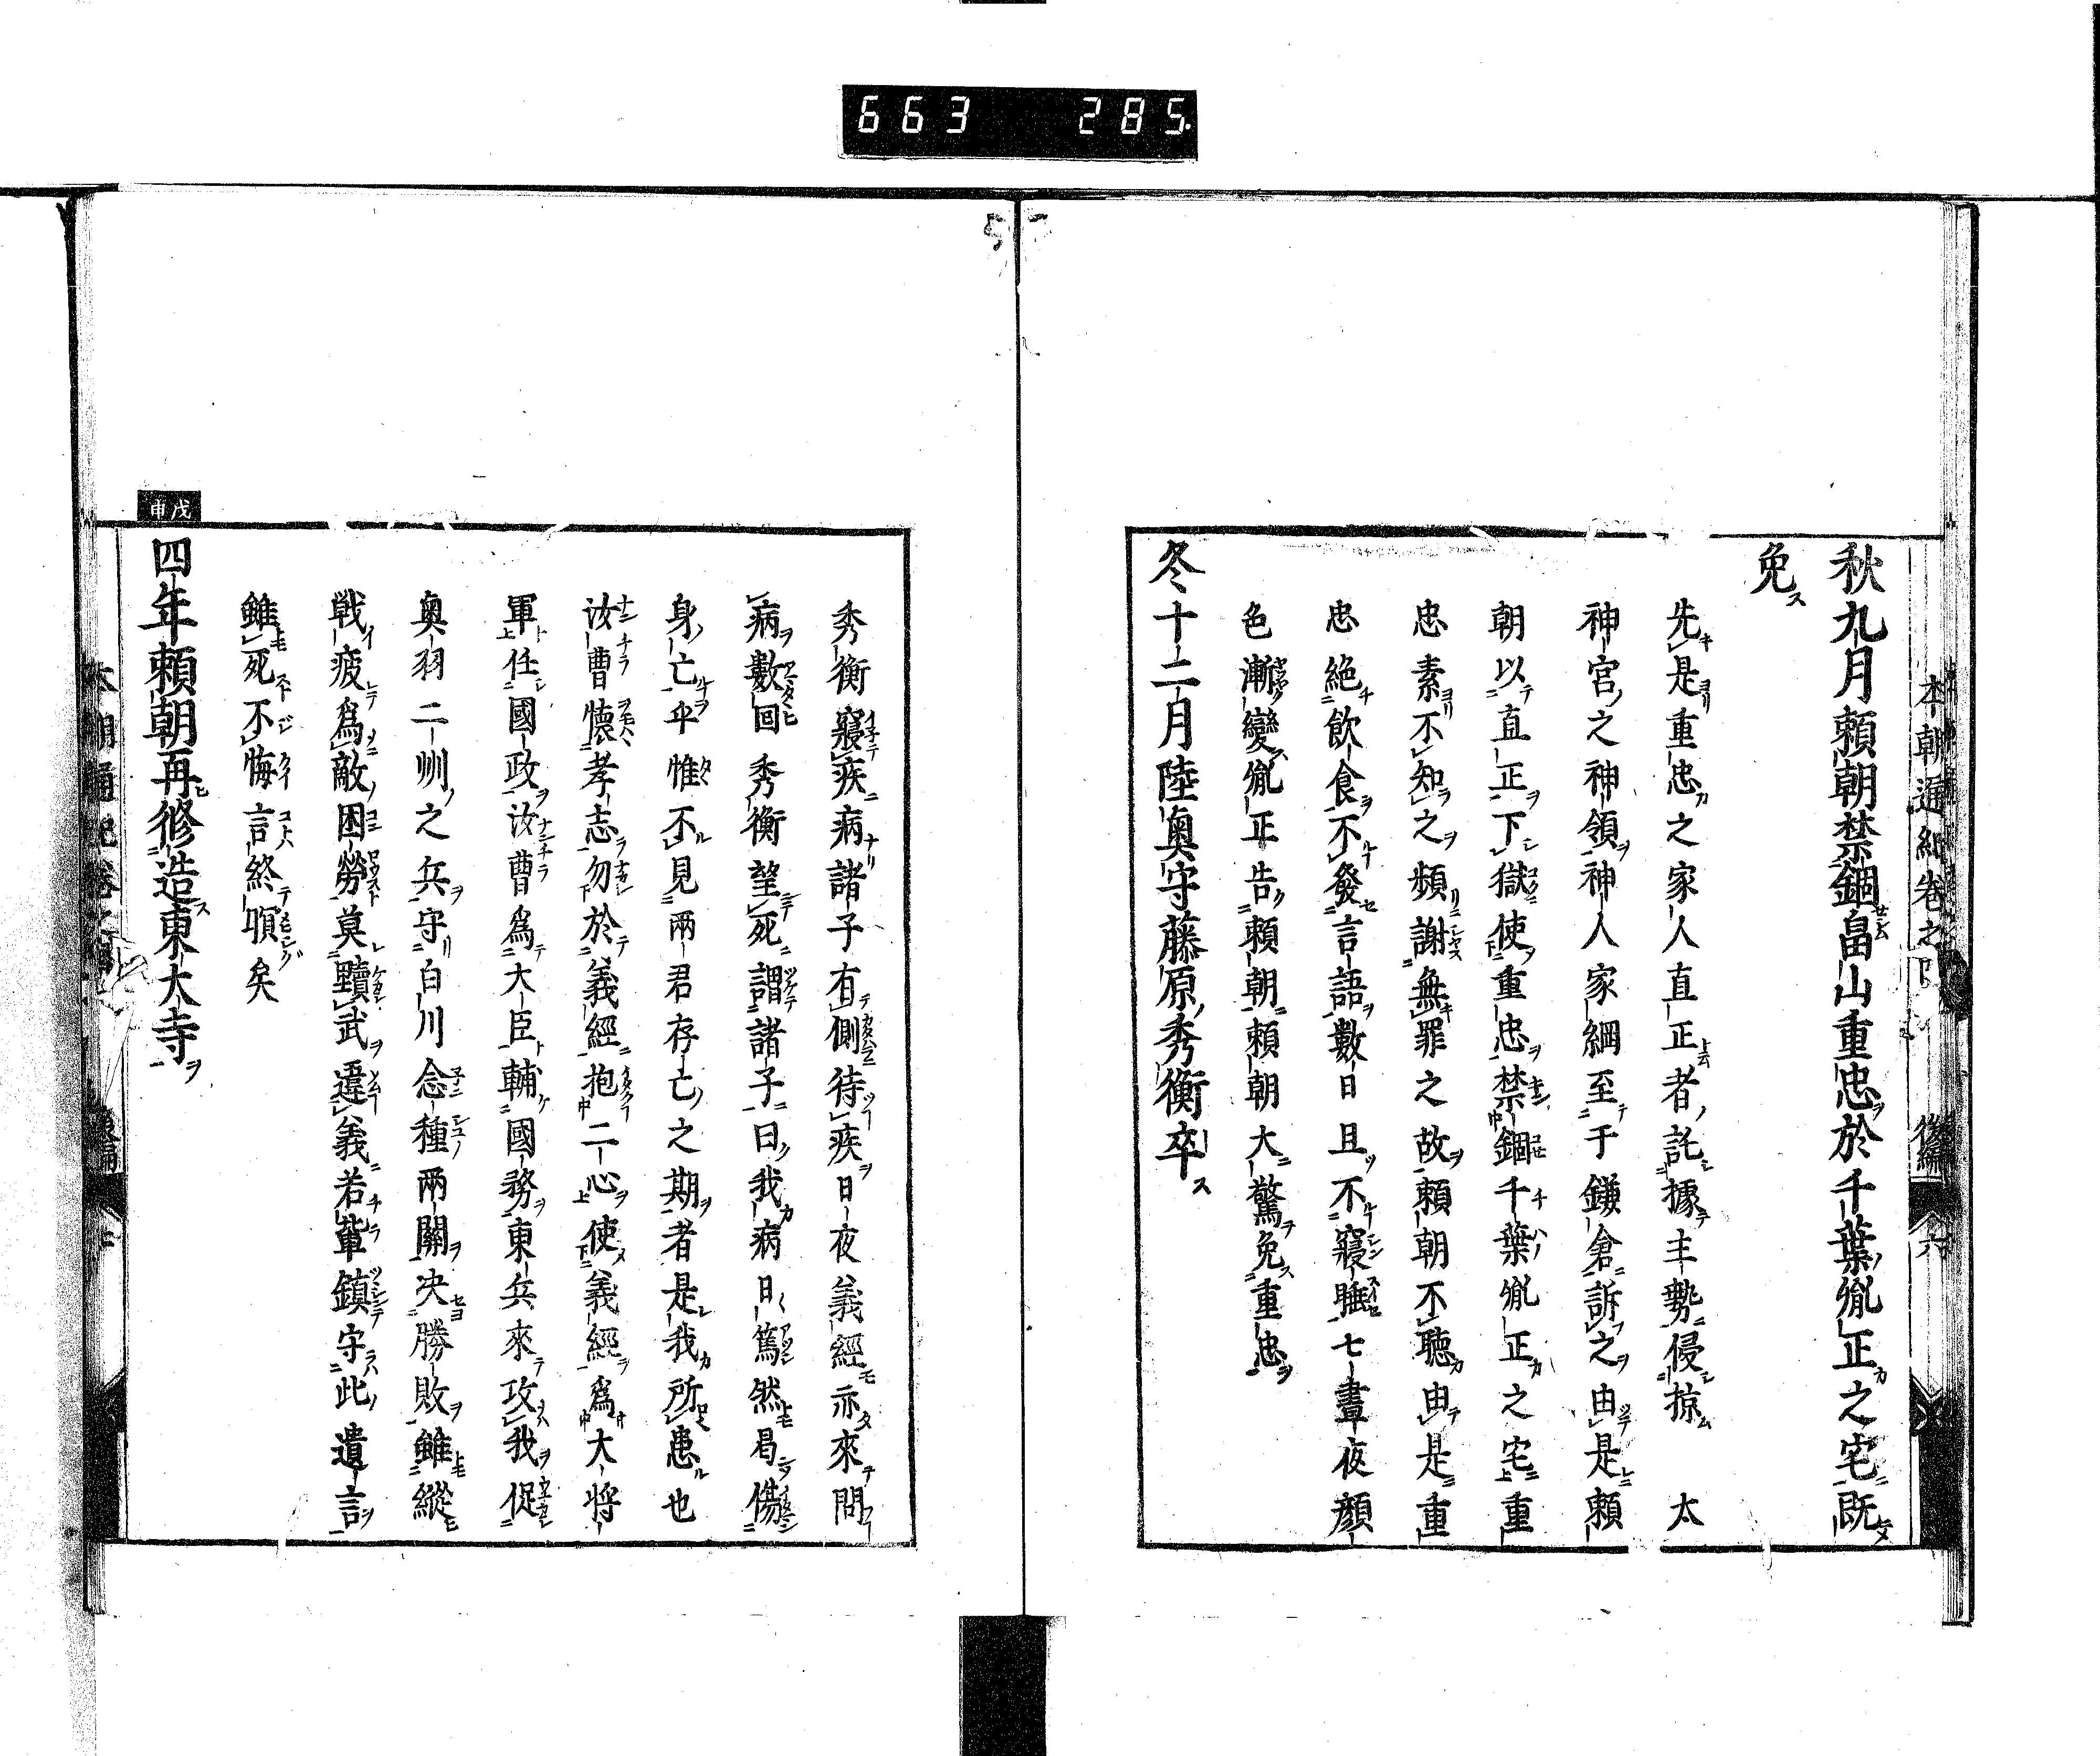 663 285
本朝通紀卷之下 後編 六
秋九月頼朝禁錮畠山重忠於千葉胤正之宅既
免
先是重忠之家人直正者託據主勢侵掠 太
神宮之神領神人家綱至于鎌倉訴之由是頼
朝以直正下獄使重忠禁錮千葉胤正之宅重
忠素不知之頻謝無罪之故頼朝不聴由是重
忠絶飲食不發言語數日且不寢睡七晝夜顔
色漸變胤正告頼朝頼朝大驚免重忠
冬十二月陸奥守藤原秀衡卒
秀衡寢疾病諸子有側待疾日夜義經亦來問
病數回秀衡望死謂諸子曰我病日篤然曷傷
身亡乎惟不見兩君存亡之期者是我所患也
汝曹懐孝志勿於義經抱二心使義經爲大将
軍任國政汝曹爲大臣輔國務東兵來攻我促
奥羽二州之兵守白川念種兩關决勝敗雖縱
戦疲爲敵困勞莫黷武違義若輩鎮守此遺言
雖死不悔言終殞矣
戊申
四年頼朝再修造東大寺